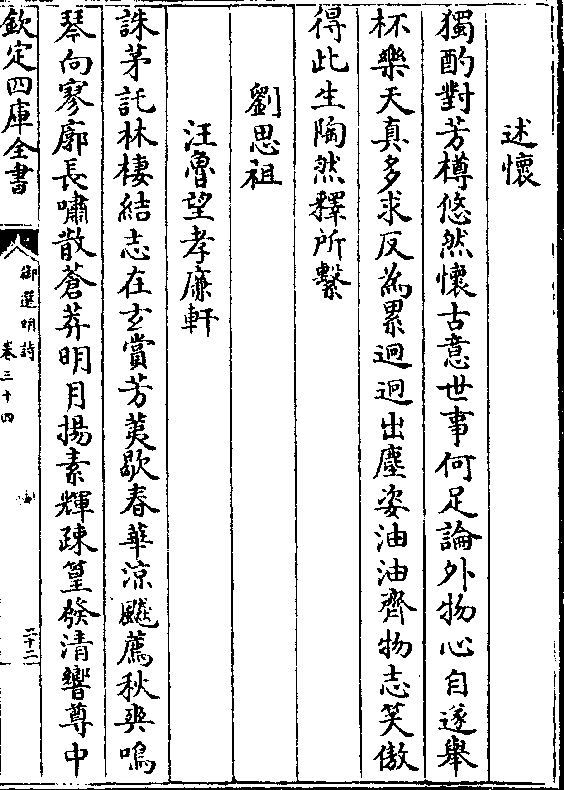 述懷
獨酌對芳樽悠然懷古意世事何足論外物心自遂舉
杯樂天真多求反為累迥迥出塵姿油油齊物志笑傲
得此生陶然釋所繫
劉思祖
汪魯望孝廉軒
誅茅託林棲結志在玄賞芳荑歇春華涼飈薦秋爽鳴
琴向寥廓長嘯散蒼莽明月揚素輝疎篁發清響尊中
欽定四庫全書
御選明詩
卷三十四
二十二